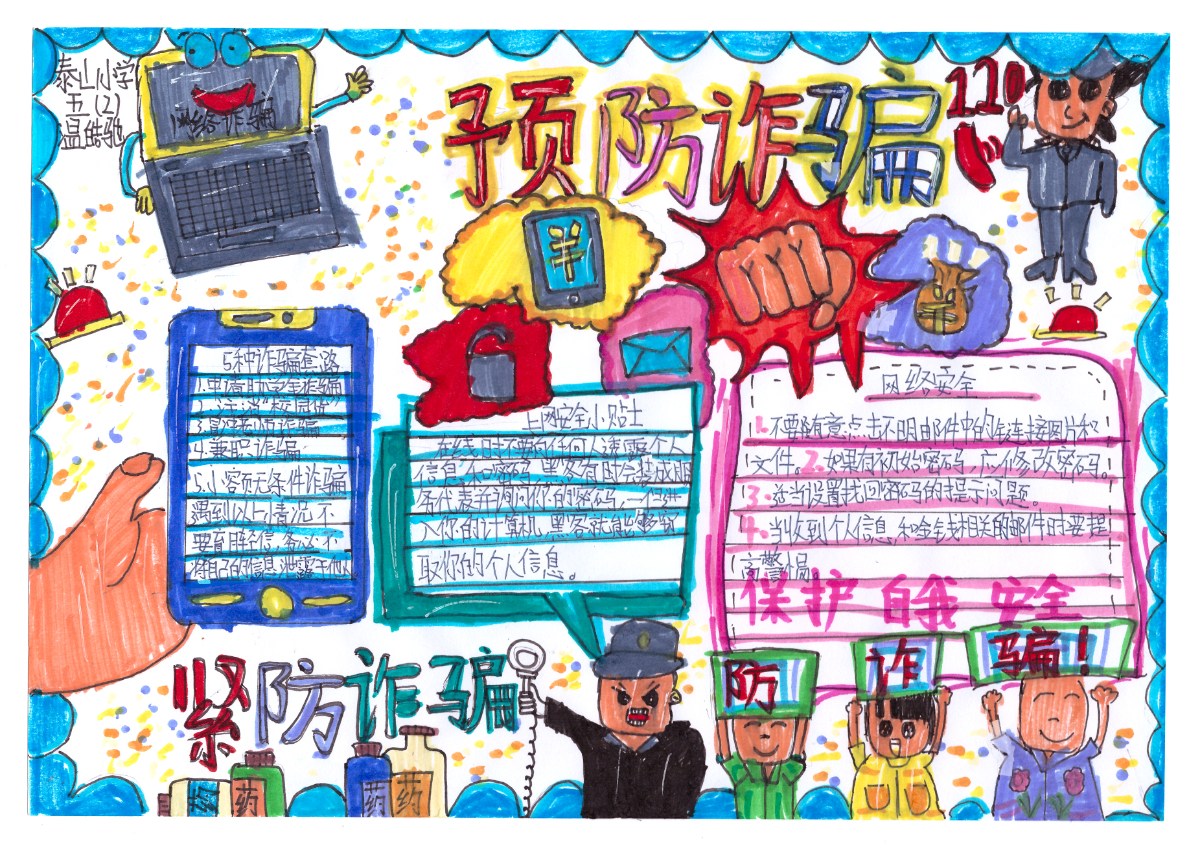 泰山小学
五(2)
温皓驰
网络诈骗
预防诈骗
110
5种诈骗套路
1.申请助学金诈骗
2.注销“校园贷”
3.诈骗
4.兼职诈骗
5.小客页无条件诈骗
遇到以上情况不
要盲目轻信,务必不
将自己的信息泄露于他人
上网安全小贴士
在线时不要向任何人透露个人
信息和密码,黑客有时会装成服
务代表并询问你的密码,一但进
入你的计算机,黑客就能够窃
取你的个人信息。
网络安全
1.不要随意点击不明邮件中的链连接图片和
文件。2.如果有初始密码,应修改密码。
3.适当设置找回密码的提示问题。
4.当收到个人信息和金钱相关的邮件时要提
高警惕。
保护自我安全
紧防诈骗
药
药
药
药
防
诈
骗!